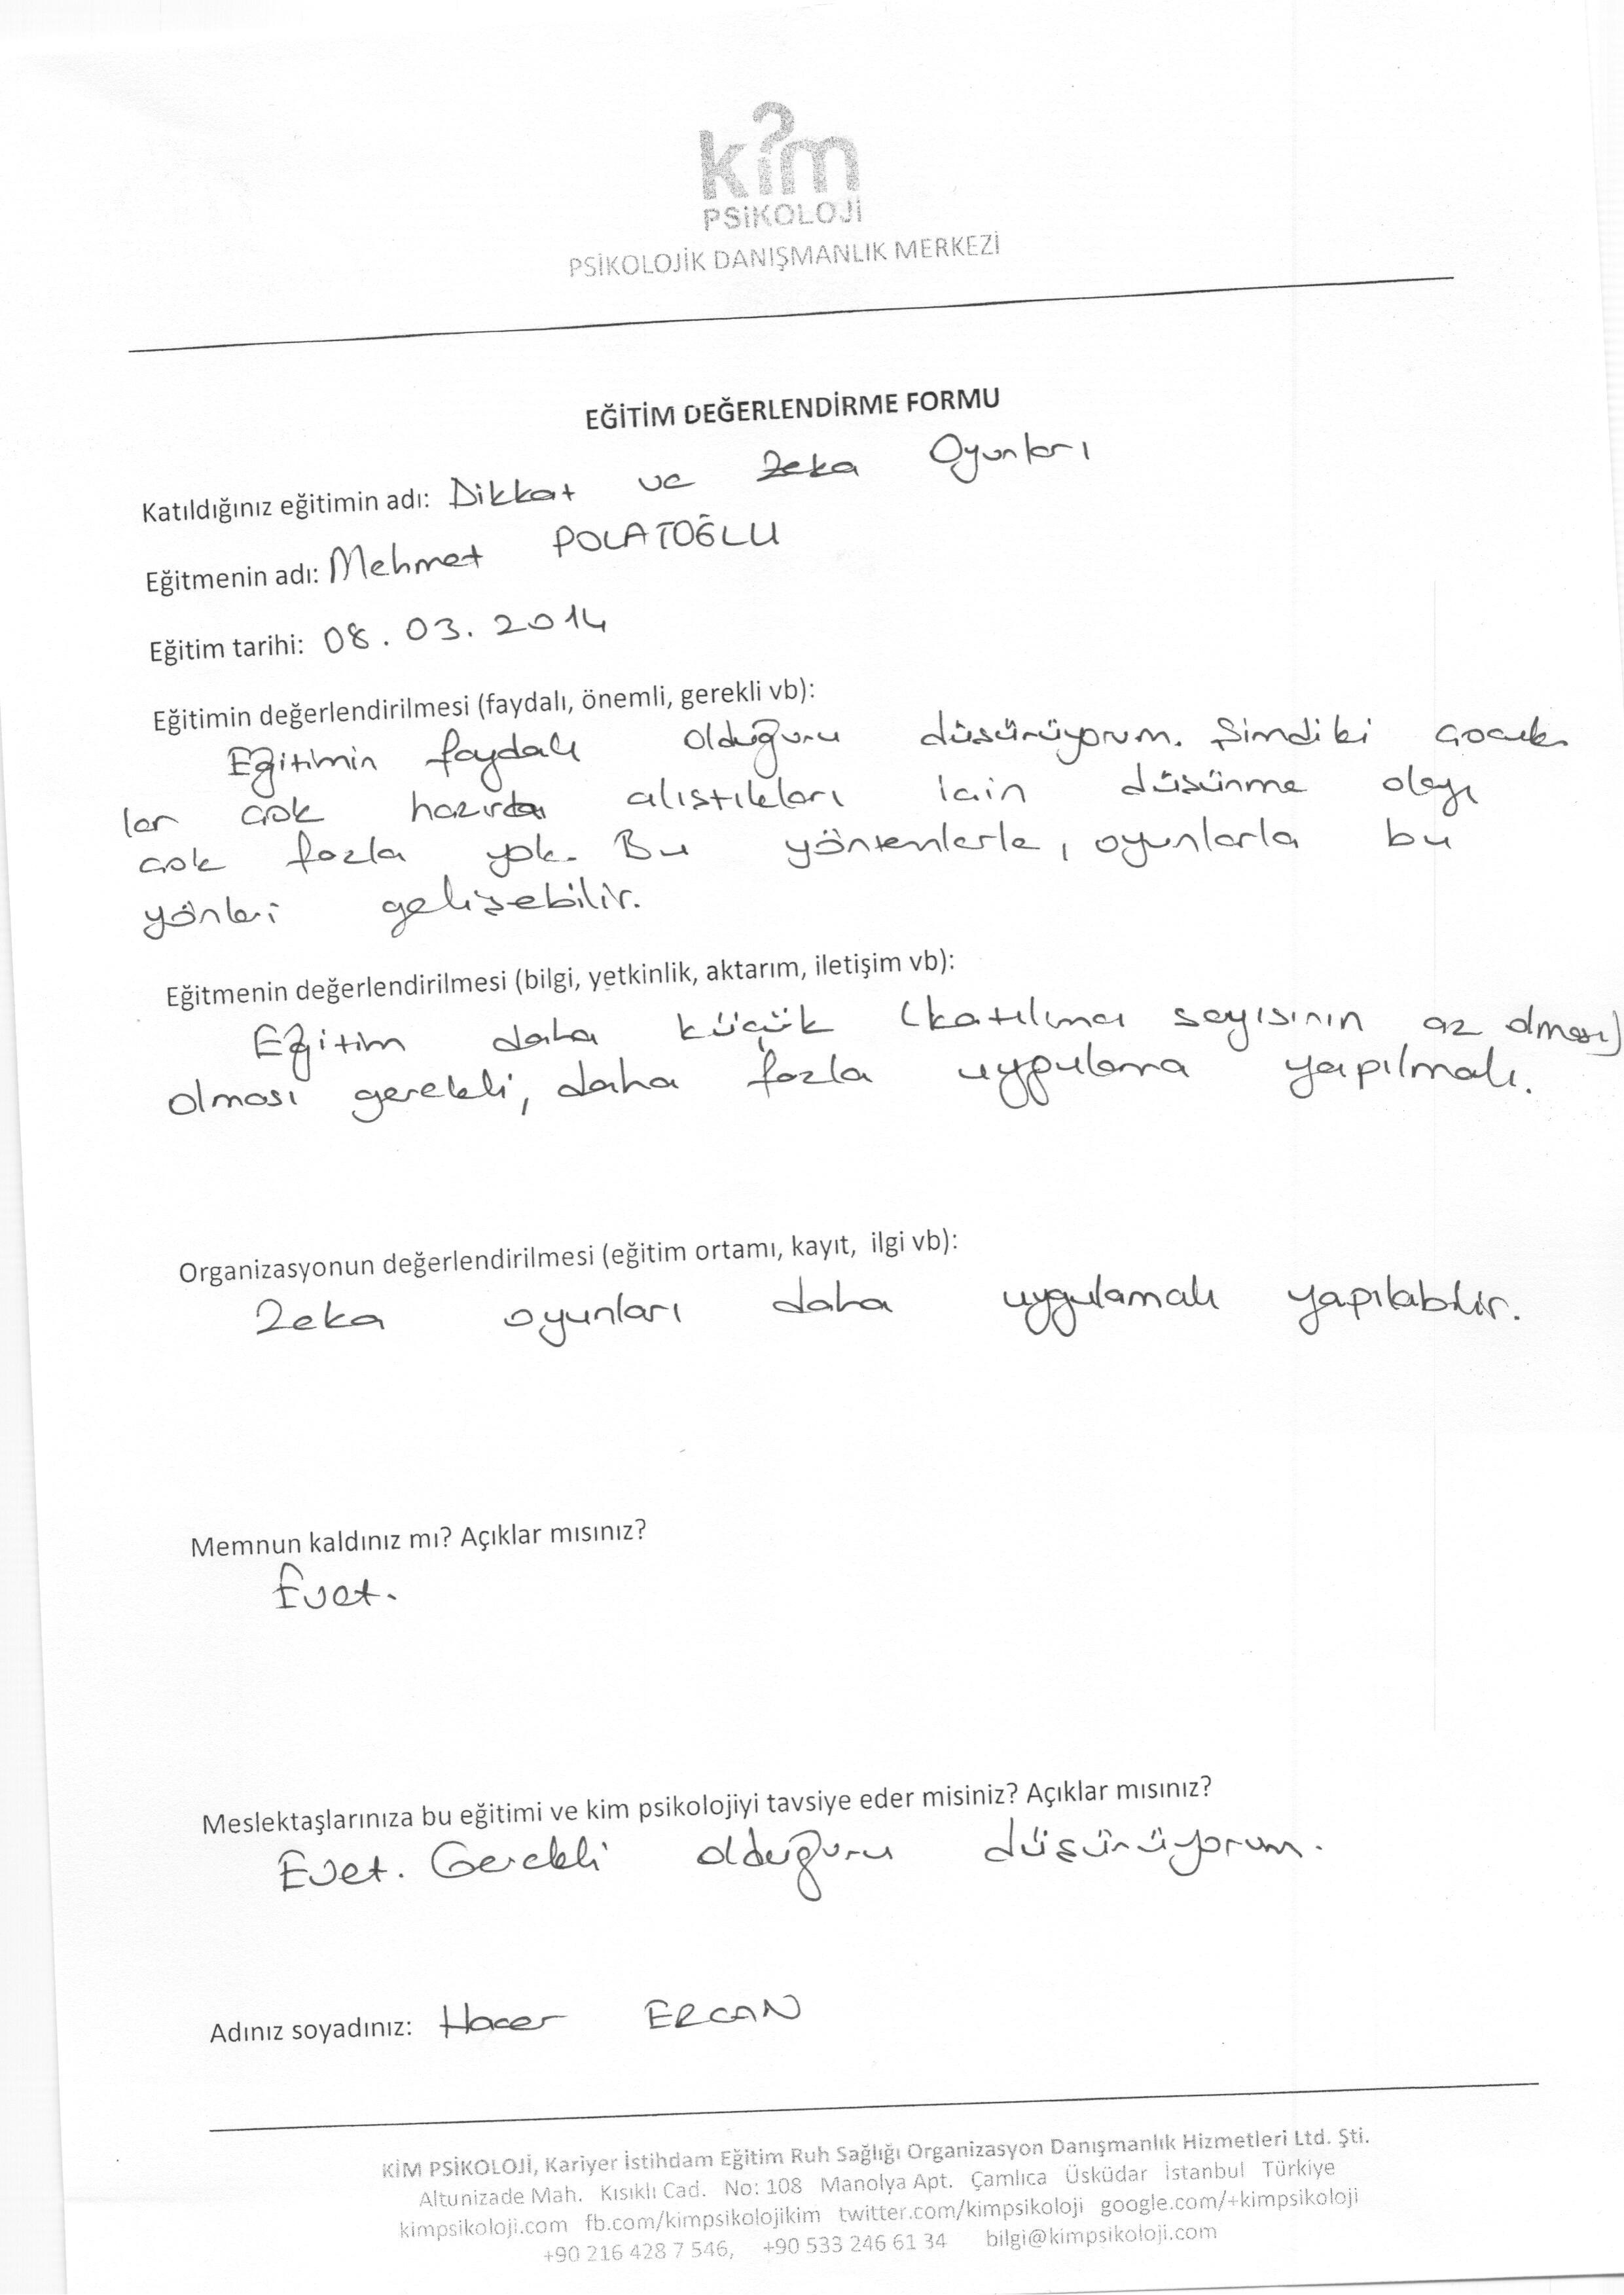 kim
PSİKOLOJİ
PSİKOLOJİK DANIŞMANLIK MERKEZİ
EĞİTİM DEĞERLENDİRME FORMU
Katıldığınız eğitimin adı: Dikkat ve Zeka Oyunları
Eğitmenin adı: Mehmet POLATOĞLU
Eğitim tarihi: 08.03.2014
Eğitimin değerlendirilmesi (faydalı, önemli, gerekli vb):
Eğitimin faydalı olduğunu düşünüyorum. Şimdiki çocuk
lar çok hazıra alıştıkları için düşünme olayı
çok fazla yok. Bu yöntemlerle, oyunlarla bu
yönleri gelişebilir.
Eğitmenin değerlendirilmesi (bilgi, yetkinlik, aktarım, iletişim vb):
Eğitim daha küçük (katılımcı sayısının az olması)
olması gerekli, daha fazla uygulama yapılmalı.
Organizasyonun değerlendirilmesi (eğitim ortamı, kayıt, ilgi vb):
Zeka oyunları daha uygulamalı yapılabilir.
Memnun kaldınız mı? Açıklar mısınız?
Evet.
Meslektaşlarınıza bu eğitimi ve kim psikolojiyi tavsiye eder misiniz? Açıklar mısınız?
Evet. Gerekli olduğunu düşünüyorum.
Adınız soyadınız: Hacer ERCAN
KİM PSİKOLOJİ, Kariyer İstihdam Eğitim Ruh Sağlığı Organizasyon Danışmanlık Hizmetleri Ltd. Şti.
Altunizade Mah. Kısıklı Cad. No: 108 Manolya Apt. Çamlıca Üsküdar İstanbul Türkiye
kimpsikoloji.com fb.com/kimpsikolojikim twitter.com/kimpsikoloji google.com/+kimpsikoloji
+90 216 428 7 546, +90 533 246 61 34 bilgi@kimpsikoloji.com